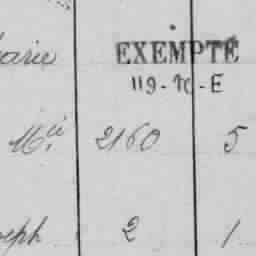 arie EXEMPTÉ
119-10-E
Mlle 2160 5
oseph 2 1